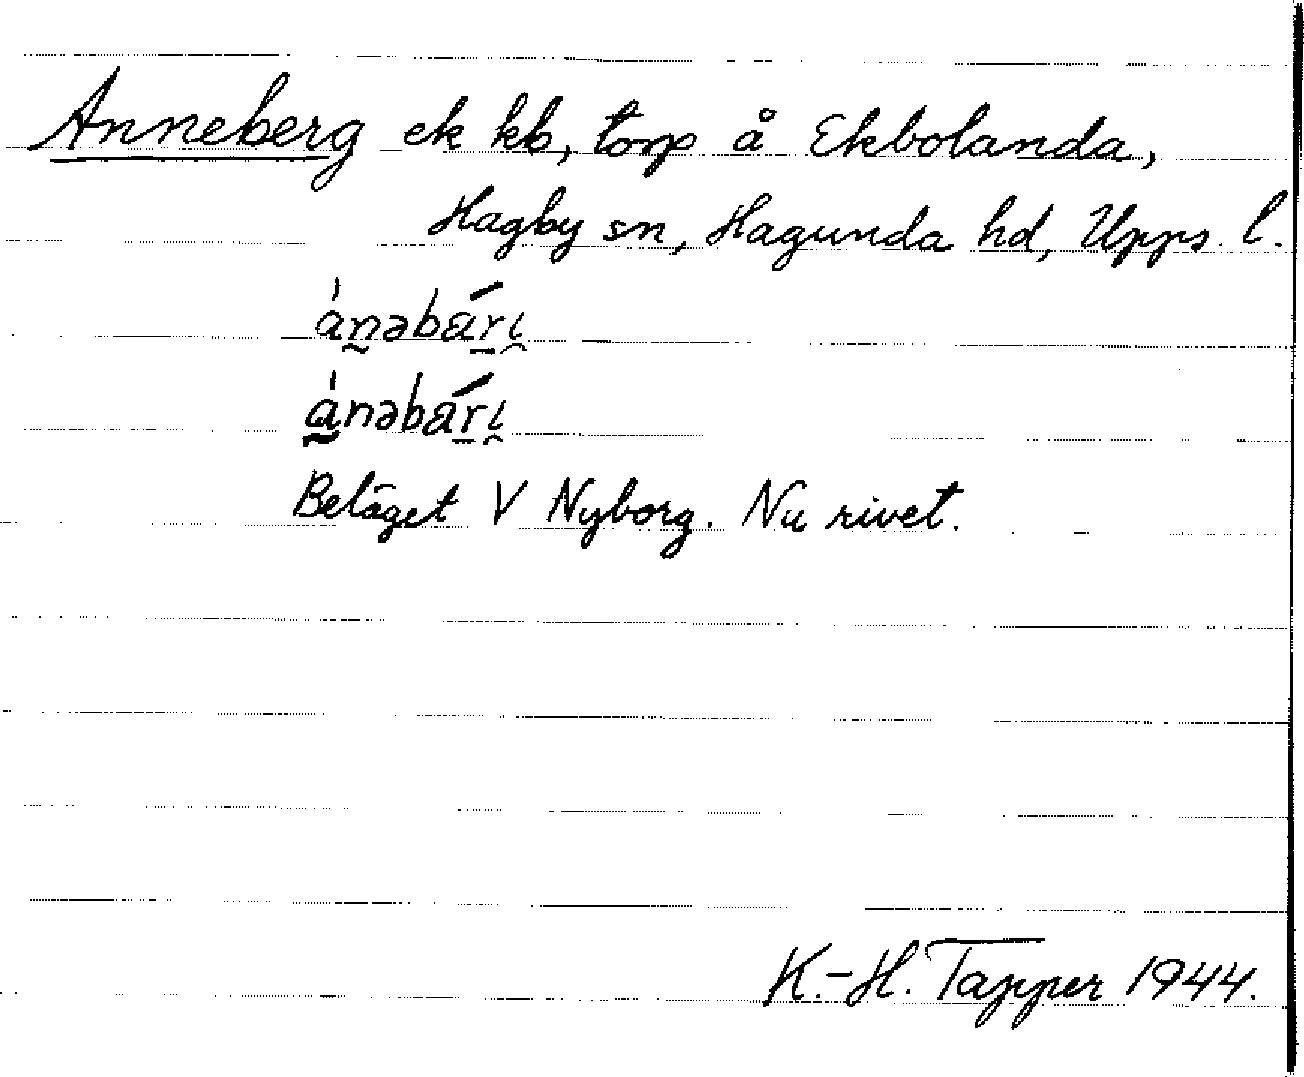 Anneberg ek kb, torp å Ekbolanda,
Hagby sn, Hagunda hd, Upps. l.
ànəbári
ànəbári
Beläget V Nyborg. Nu rivet.
K.-H. Tapper 1944.